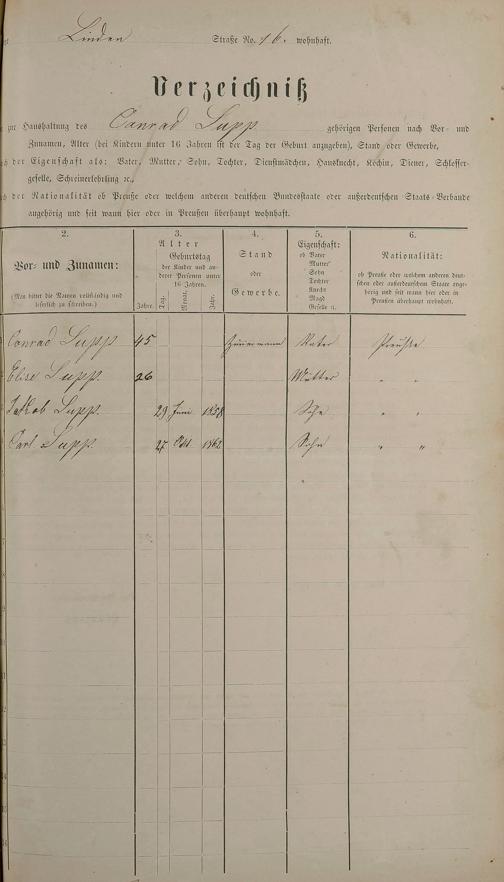 Linden Straße No. 16. wohnhaft.
Verzeichniß
zur Haushaltung des Conrad Supp gehörigen Personen nach Vor- und
Zunamen, Alter (bei Kindern unter 16 Jahren ist der Tag der Geburt anzugeben), Stand oder Gewerbe,
der Eigenschaft als: Vater, Mutter, Sohn, Tochter, Dienstmädchen, Hausknecht, Köchin, Diener, Schlosser-
geselle, Schreinerlehrling ꝛc.,
der Nationalität ob Preuße oder welchem anderen deutschen Bundesstaate oder außerdeutschen Staats-Verbande
angehörig und seit wann hier oder in Preußen überhaupt wohnhaft.
2. 3. 4. 5. 6.
Vor- und Zunamen:
(Man bittet die Namen vollständig und
leserlich zu schreiben.)
Alter
Geburtstag
der Kinder und an-
derer Personen unter
16 Jahren.
Jahre. Tag. Monat. Jahr.
Stand
oder
Gewerbe.
Eigenschaft:
ob Vater
Mutter
Sohn
Tochter
Knecht
Magd
Geselle ꝛc.
Nationalität:
ob Preuße oder welchem anderen deut-
schen oder außerdeutschen Staate ange-
hörig und seit wann hier oder in
Preußen überhaupt wohnhaft.
Conrad Supp 45 Vater Preuße
Elise Supp. 26 Mutter " "
Jakob Supp. 29 Juni 1858 " "
Carl Supp. 27 Okt 1862 Sohn " "